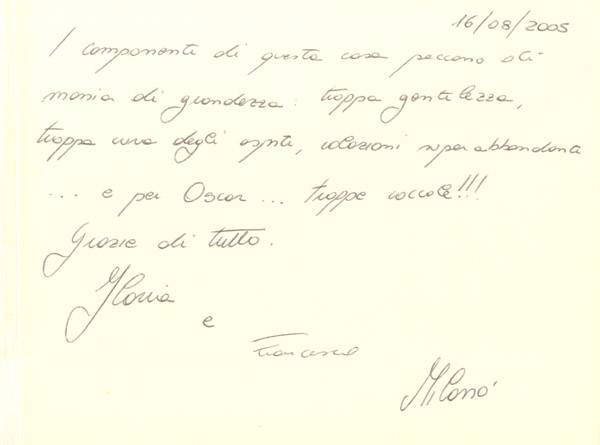 16/08/2005
I componenti di questa casa peccano di
mania di grandezza: troppa gentilezza,
troppa cura degli ospiti, colazioni superabbondanti
... e per Oscar ... troppe coccole!!!
Grazie di tutto.
Ilaria
e
Francesco
Milano